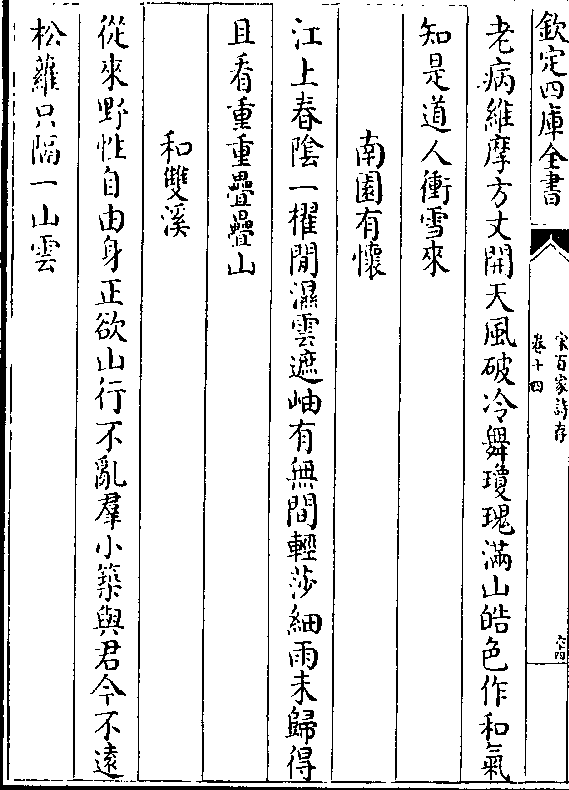 欽定四庫全書
宋百家詩存
卷十四
六十四
老病維摩方丈開天風破冷舞瓊瑰滿山皓色作和氣
知是道人衝雪來
南園有懷
江上春陰一櫂閒濕雲遮岫有無間輕莎細雨未歸得
且看重重疊疊山
和雙溪
從來野性自由身正欲山行不亂羣小築與君今不遠
松蘿只隔一山雲